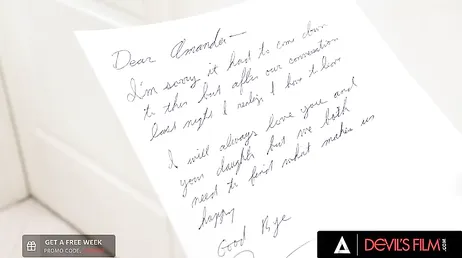 Dear Amanda—
I'm sorry it had to come down
to this but after our conversation
last night I realize I have to leave
I will always love you and
your daughter but we both
need to find what makes us
happy
Good Bye
GET A FREE WEEK
PROMO CODE:
DEVIL'S FILM.COM